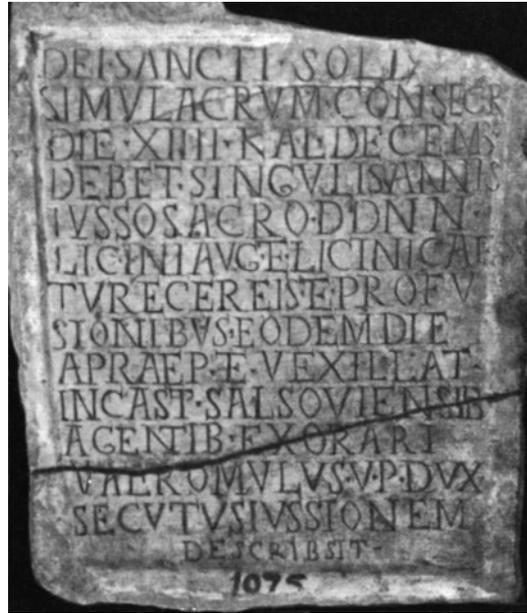 DEI·SANCTI·SOLIS
SIMVLACRVM·CONSECR
DIE·XIIII·KAL·DECEMB
DEBET·SINGVLIS·ANNIS
IVSSO·SACRO·D·D·N·N·
LICINI·AVG·E·LICINI·CAES
TVRE·CEREIS·E·PROFV
SIONIBVS·EODEM·DIE
A·PRAEP·E·VEXILLAT·
IN·CAST·SALSOVIENSIB
AGENTIB·EXORARI
VAL·ROMVLVS·V·P·DVX
SECVTVS·IVSSIONEM
DESCRIBSIT·
1075